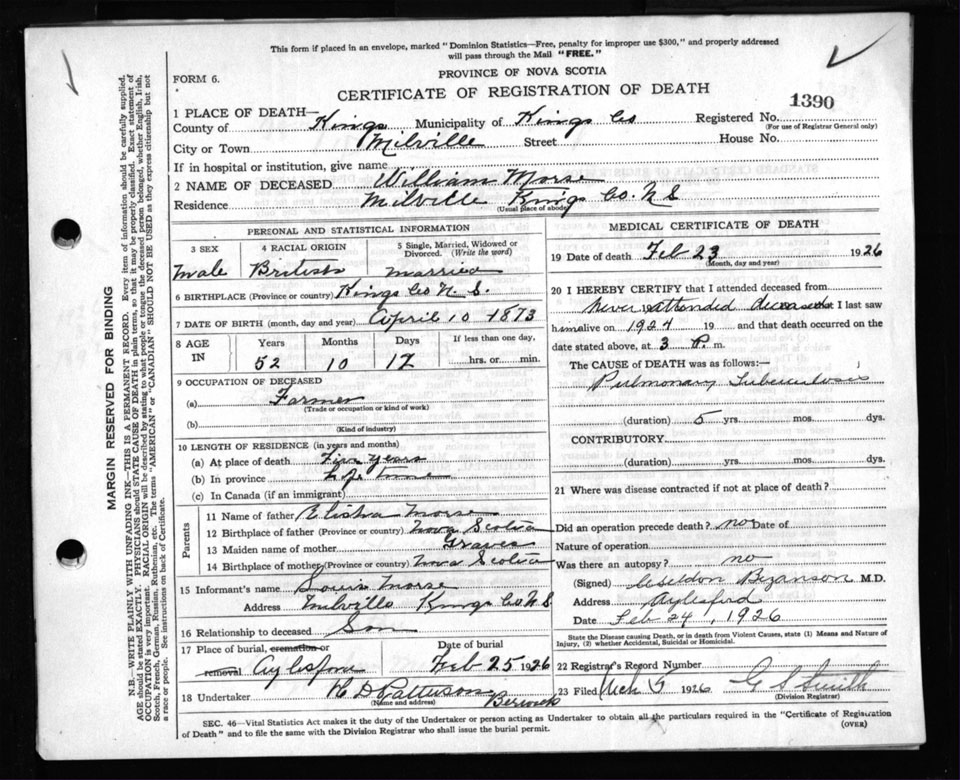 This form if placed in an envelope, marked "Dominion Statistics—Free, penalty for improper use $300," and properly addressed
will pass through the Mail "FREE."
FORM 6.
PROVINCE OF NOVA SCOTIA
CERTIFICATE OF REGISTRATION OF DEATH
1390
1 PLACE OF DEATH—
County of Kings Municipality of Kings Co Registered No.
(For use of Registrar General only)
City or Town Milville Street House No.
If in hospital or institution, give name
2 NAME OF DECEASED William Morse
Residence Milville Kings Co. N S
(Usual place of abode)
PERSONAL AND STATISTICAL INFORMATION
3 SEX 4 RACIAL ORIGIN 5 Single, Married, Widowed or Divorced. (Write the word)
Male British Married
6 BIRTHPLACE (Province or country) Kings Co N. S.
7 DATE OF BIRTH (month, day and year) April 10 1873
8 AGE IN Years Months Days If less than one day,
52 10 12 hrs. or min.
9 OCCUPATION OF DECEASED
(a) Farmer
(Trade or occupation or kind of work)
(b)
(Kind of industry)
10 LENGTH OF RESIDENCE (in years and months)
(a) At place of death Five years
(b) In province Life time
(c) In Canada (if an immigrant)
Parents
11 Name of father Elisha Morse
12 Birthplace of father (Province or country) Nova Scotia
13 Maiden name of mother Graves
14 Birthplace of mother (Province or country) Nova Scotia
15 Informant's name Louis Morse
Address Milville Kings Co N S
16 Relationship to deceased Son
17 Place of burial, cremation or removal Date of burial
Aylesford Feb 25 1926
18 Undertaker H D Patterson Berwick
(Name and address)
MEDICAL CERTIFICATE OF DEATH
19 Date of death Feb 23 1926
(Month, day and year)
20 I HEREBY CERTIFY that I attended deceased from
Never attended deceased that I last saw
him alive on 1924 19 and that death occurred on the
date stated above, at 3 P. m.
The CAUSE OF DEATH was as follows:—
Pulmonary Tuberculosis
(duration) 5 yrs. mos. dys.
CONTRIBUTORY
(duration) yrs. mos. dys.
21 Where was disease contracted if not at place of death?
Did an operation precede death? no Date of
Nature of operation
Was there an autopsy? no
(Signed) Bezanson M.D.
Address Aylesford
Date Feb 24, 1926
State the Disease causing Death, or in death from Violent Causes, state (1) Means and Nature of
Injury, (2) whether Accidental, Suicidal or Homicidal.
22 Registrar's Record Number
23 Filed Mch 5 1926 G S Smith
(Division Registrar)
SEC. 46—Vital Statistics Act makes it the duty of the Undertaker or person acting as Undertaker to obtain all the particulars required in the "Certificate of Registration
of Death" and to file the same with the Division Registrar who shall issue the burial permit.
(OVER)
MARGIN RESERVED FOR BINDING
N.B.—WRITE PLAINLY WITH UNFADING INK—THIS IS A PERMANENT RECORD. Every item of information should be carefully supplied.
AGE should be stated EXACTLY. PHYSICIANS should STATE CAUSE OF DEATH in plain terms, so that it may be properly classified. Exact statement of
OCCUPATION is very important. RACIAL ORIGIN will be described by stating to what people or tongue the deceased person belonged, whether English, Irish,
Scotch, French, German, Russian, Ruthenian, etc. The terms "AMERICAN" or "CANADIAN" SHOULD NOT BE USED as they express citizenship but not
a race or people. See instructions on back of Certificate.